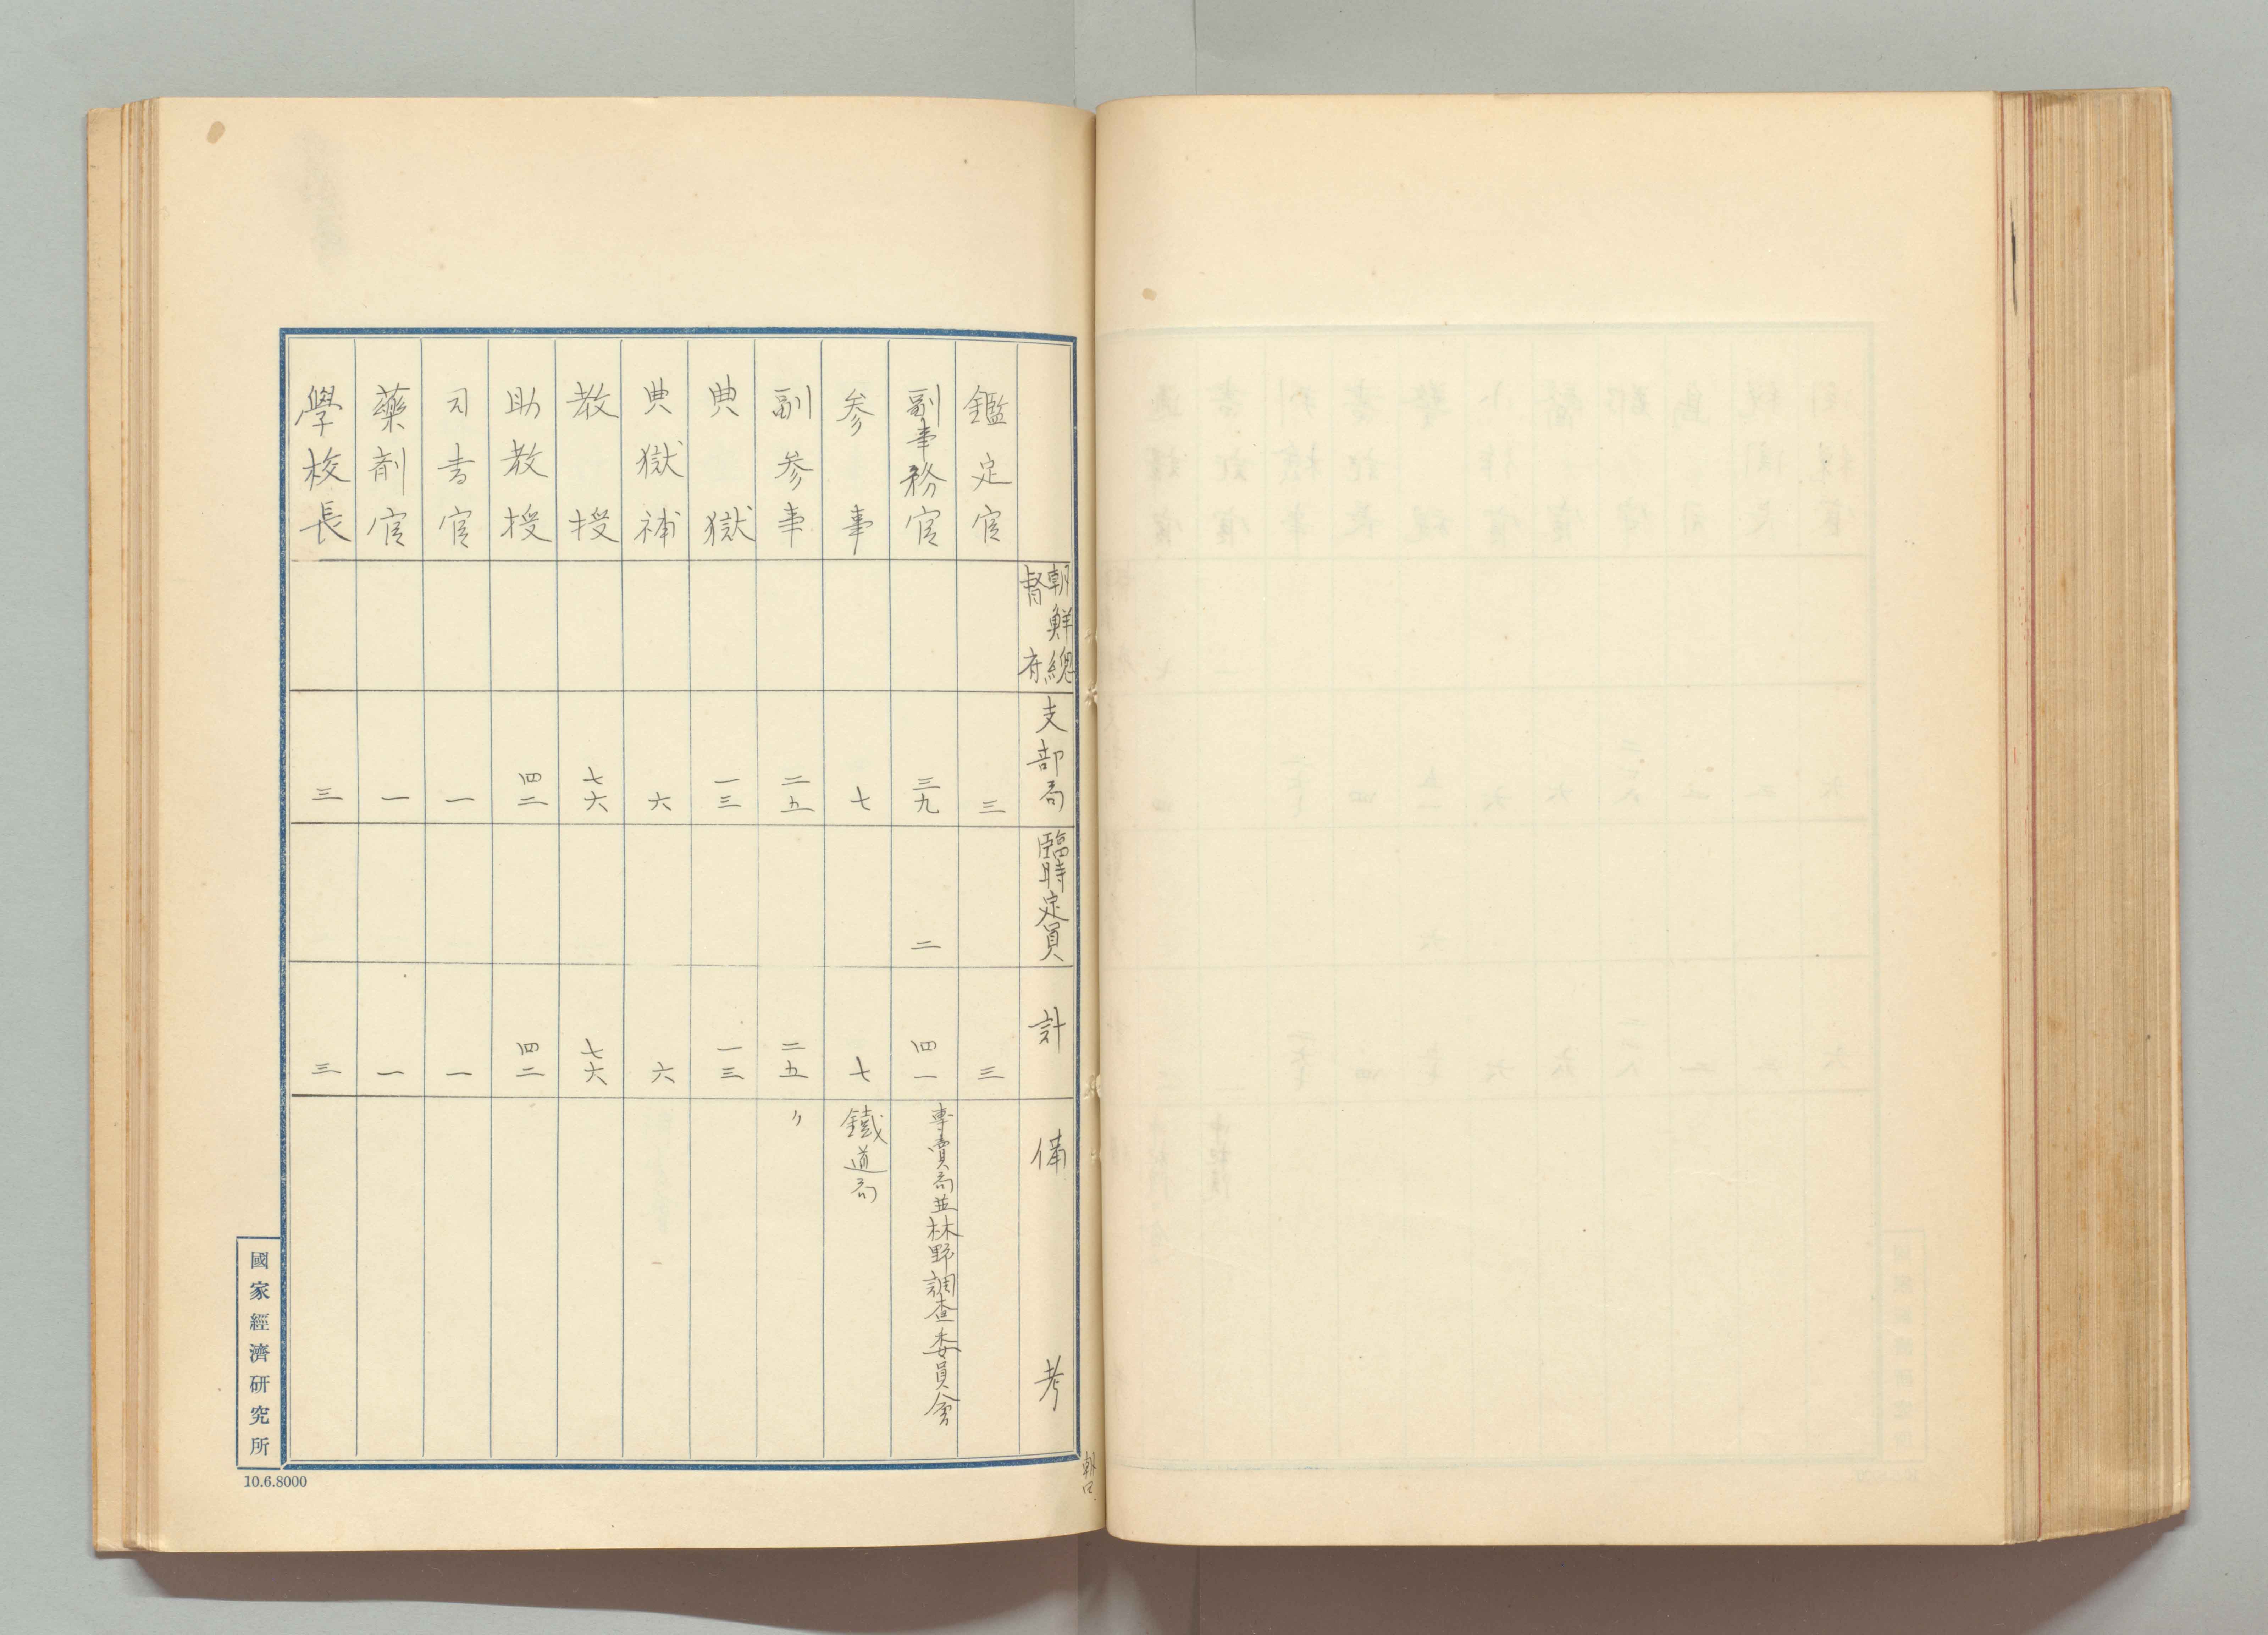 朝鮮總督府 支部局 臨時定員 計 備考
鑑定官 三 三
副事務官 三九 二 四一 專賣局並林野調査委員會
参事 七 七 鐵道局
副参事 二五 二五 〃
典獄 一三 一三
典獄補 六 六
教授 七六 七六
助教授 四二 四二
司書官 一 一
藥剤官 一 一
學校長 三 三
國家經濟研究所
10.6.8000